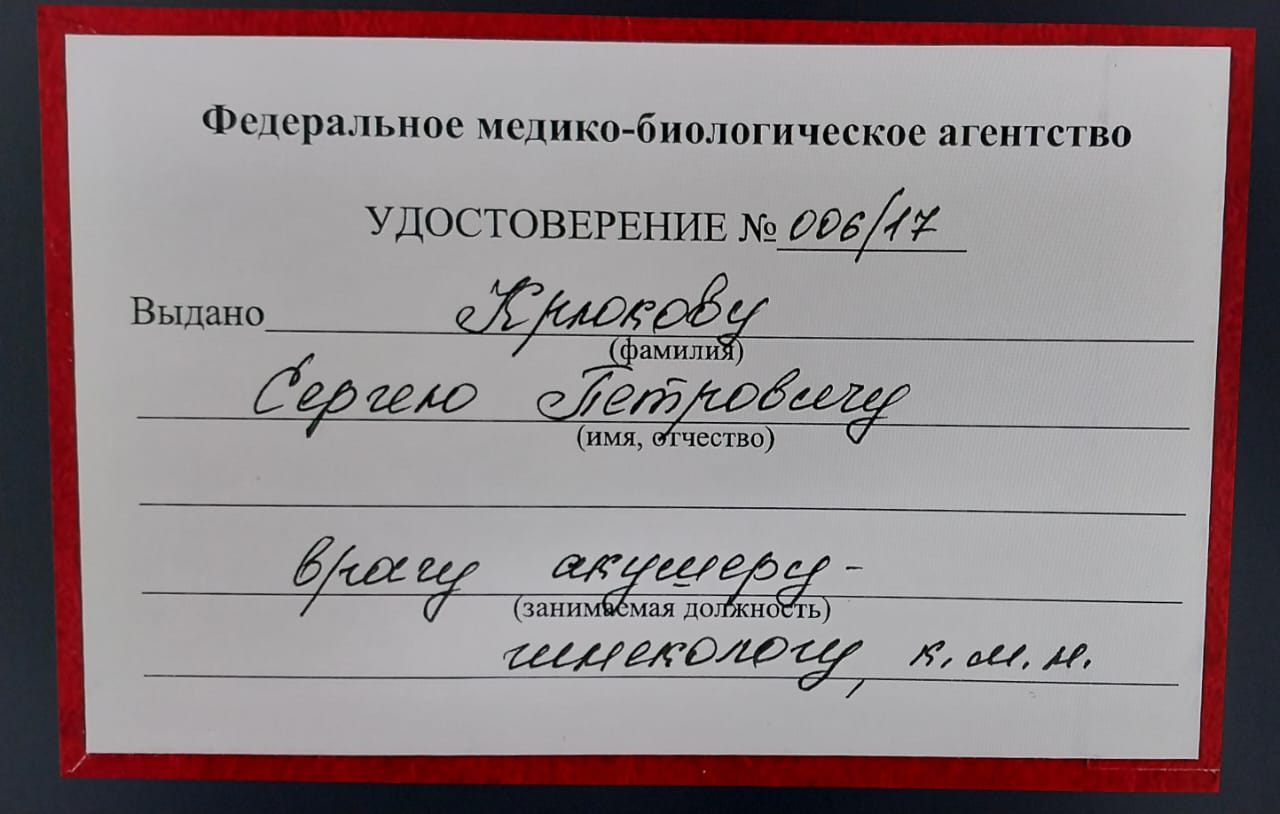 Федеральное медико-биологическое агентство
УДОСТОВЕРЕНИЕ № 006/17
Выдано Крюкову
(фамилия)
Сергею Петровичу
(имя, отчество)
врачу акушеру-
(занимаемая должность)
гинекологу, к.м.н.